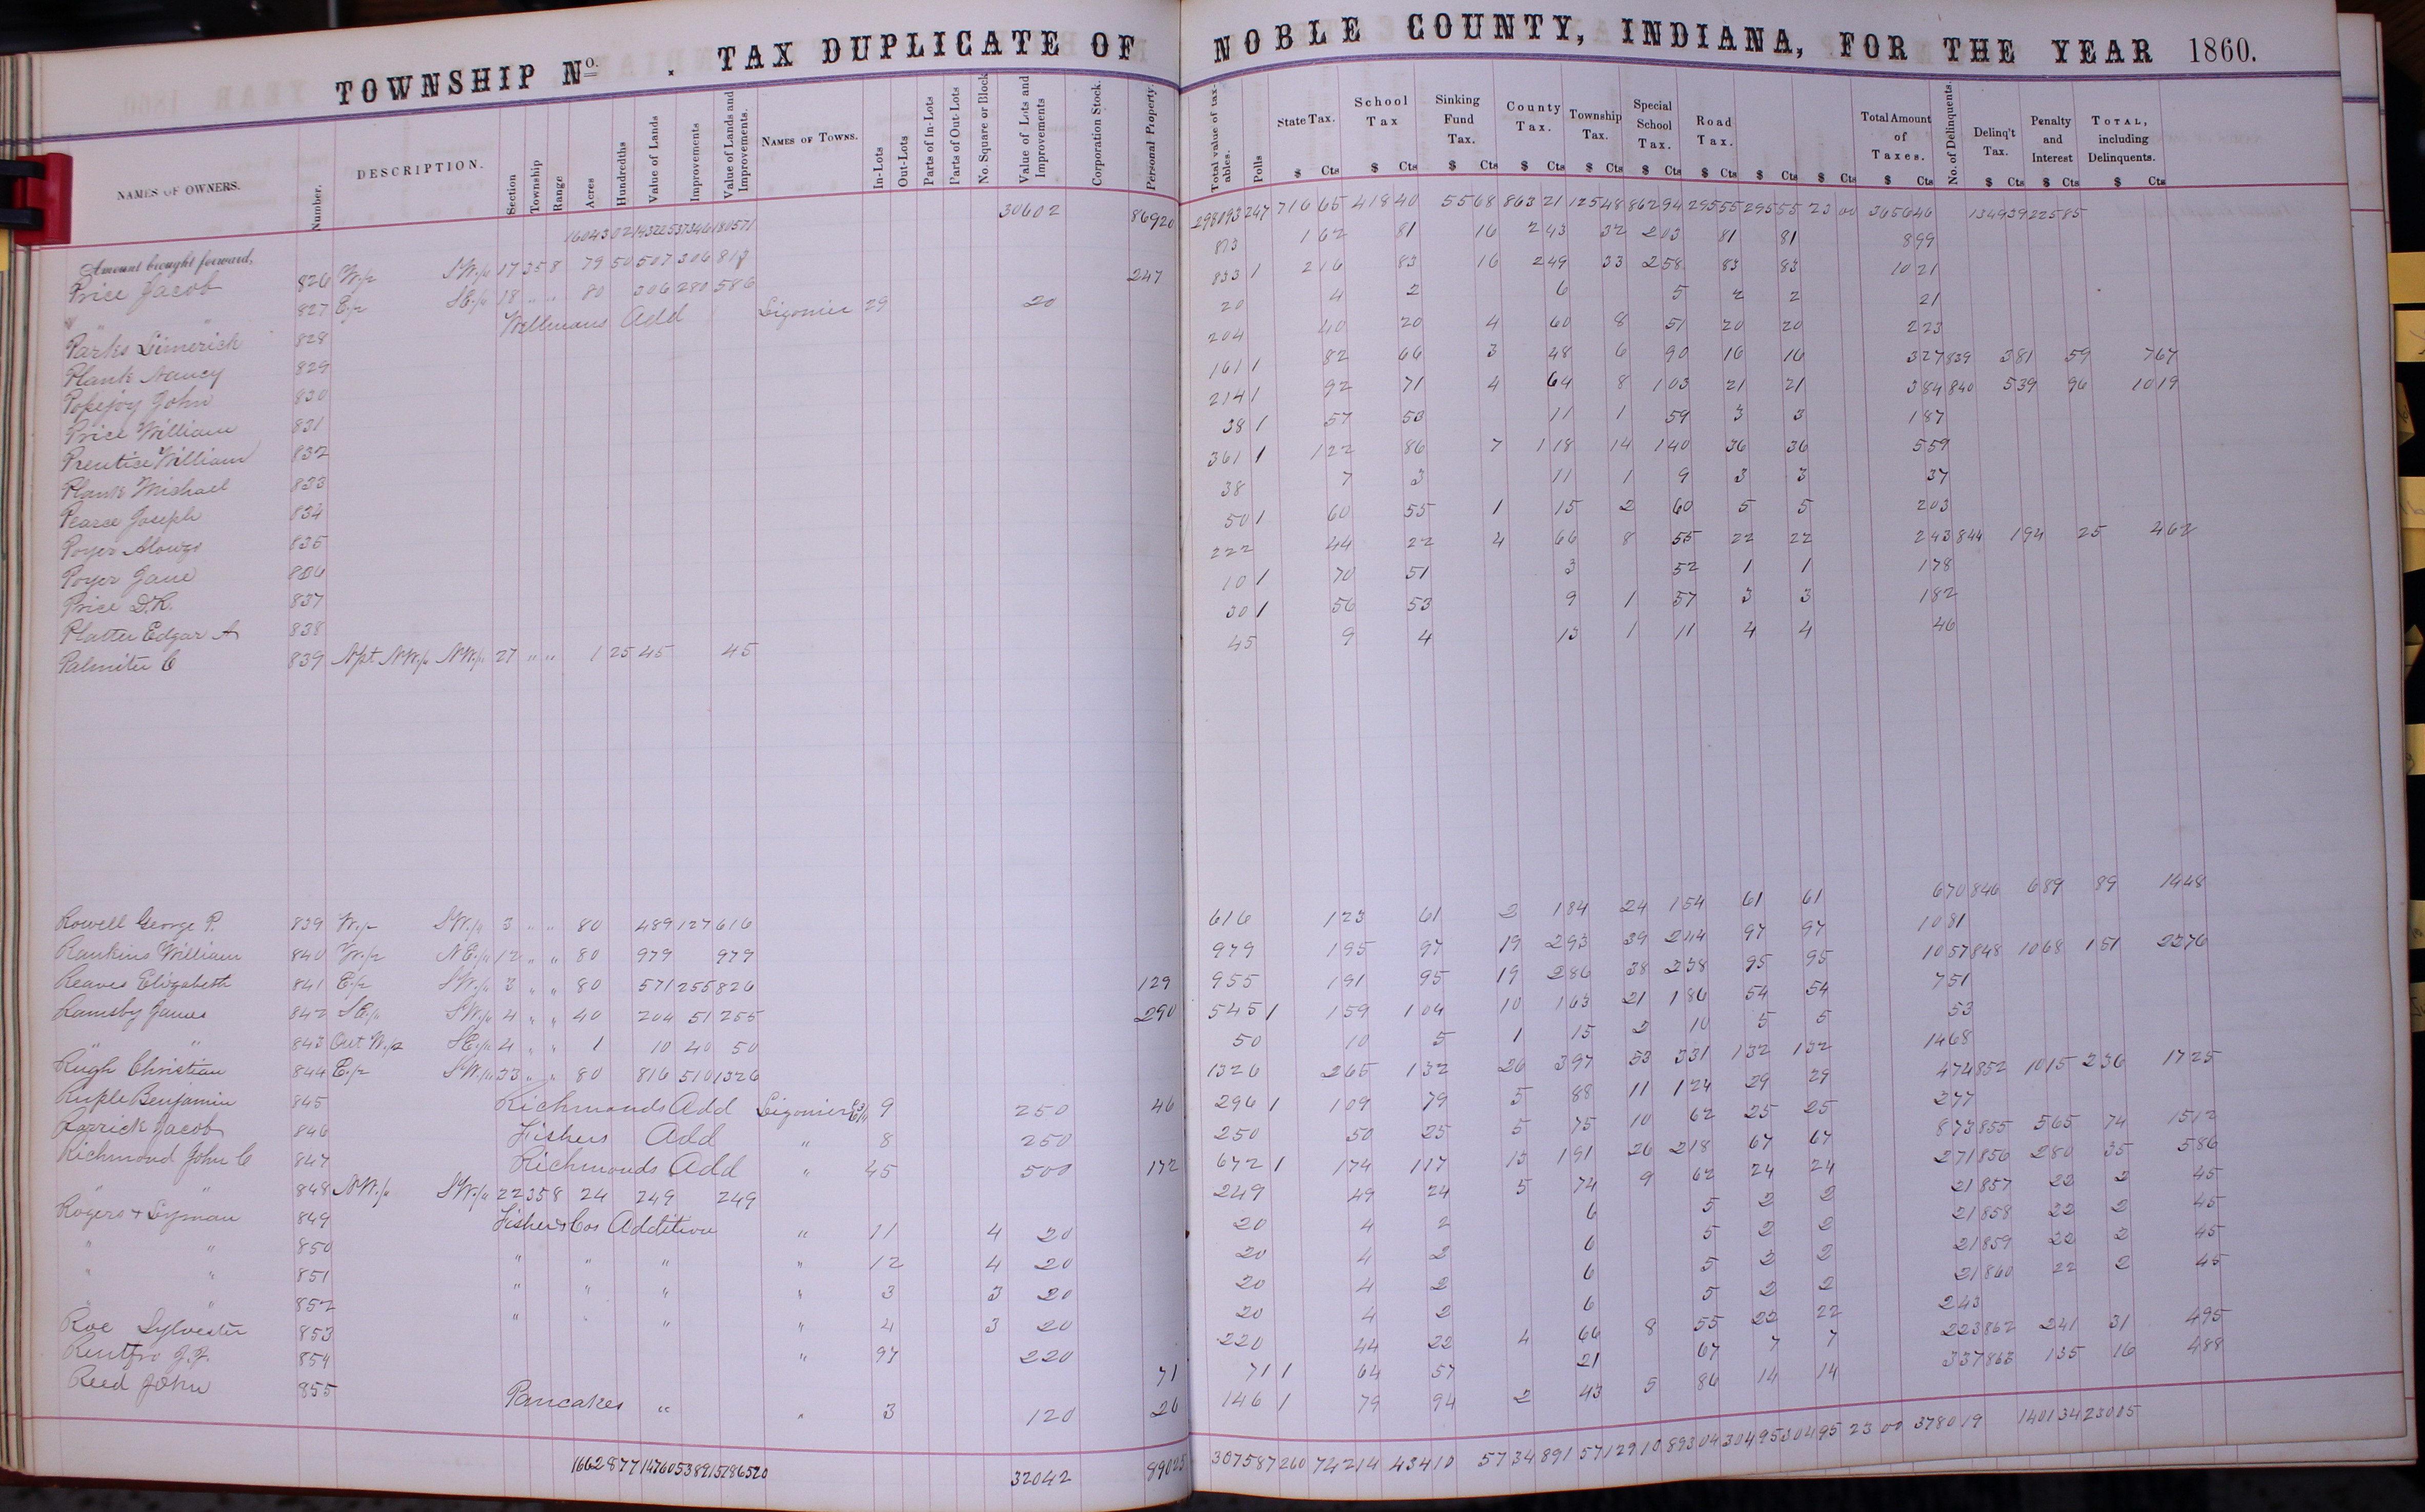 TOWNSHIP No. . TAX DUPLICATE OF NOBLE COUNTY, INDIANA, FOR THE YEAR 1860.
NAMES OF OWNERS. Number. DESCRIPTION. Section Township Range Acres Hundredths Value of Lands Improvements Value of Lands and Improvements. NAMES OF TOWNS. In-Lots Out-Lots Parts of In-Lots Parts of Out-Lots No. Square or Block Value of Lots and Improvements Corporation Stock. Personal Property. Total value of taxables. Polls State Tax. School Tax Sinking Fund Tax. County Tax. Township Tax. Special School Tax. Road Tax. Total Amount of Taxes. No. of Delinquents. Delinq't Tax. Penalty and Interest TOTAL, including Delinquents.
$ Cts $ Cts $ Cts $ Cts $ Cts $ Cts $ Cts $ Cts $ Cts $ Cts $ Cts $ Cts $ Cts
Amount brought forward, 30602 86920 298093 247 716 65 418 40 55 68 863 21 125 48 862 94 295 55 295 55 23 00 3656 46 1349 39 225 85
Price Jacob 826 W/2 SW/4 17 35 8 79 50 507 306 813 813 1 62 81 16 2 43 32 2 03 81 81 8 99
" " 827 E/2 SE/4 18 " " 80 306 280 586 247 833 1 2 16 83 16 2 49 33 2 58 83 83 10 21
Parks Limerick 828 Wellmans Add Ligonier 29 20 20 4 2 6 5 2 2 21
Plank Nancy 829 204 40 20 4 60 8 51 20 20 2 23
Popejoy John 830 161 1 82 66 3 48 6 90 16 16 3 27 839 3 81 59 7 67
Price William 831 214 1 92 71 4 64 8 1 03 21 21 3 84 840 5 39 96 10 19
Prentice William 832 38 1 57 53 11 1 59 3 3 1 87
Plank Michael 833 361 1 1 22 86 7 1 18 14 1 40 36 36 5 59
Pearce Joseph 834 38 7 3 11 1 9 3 3 37
Poyer Alonzo 835 50 1 60 55 1 15 2 60 5 5 2 03
Poyer Jane 836 222 44 22 4 66 8 55 22 22 2 43 844 1 94 25 4 62
Price D.R. 837 10 1 70 51 3 52 1 1 1 78
Platter Edgar A 838 30 1 56 53 9 1 57 3 3 1 82
Palmiter C 839 Npt NW/4 NW/4 27 " " 1 25 45 45 45 9 4 13 1 11 4 4 46
Rowell George P. 839 W/2 SW/4 3 " " 80 489 127 616 616 1 23 61 2 1 84 24 1 54 61 61 6 70 846 6 89 89 14 48
Rankins William 840 W/2 NE/4 12 " " 80 979 979 979 1 95 97 19 2 93 39 2 44 97 97 10 81
Reaves Elizabeth 841 E/2 SW/4 3 " " 80 571 255 826 129 955 1 91 95 19 2 86 38 2 38 95 95 10 57 848 10 68 1 51 22 76
Ramsby James 842 SE/4 SW/4 4 " " 40 204 51 255 290 545 1 1 59 1 04 10 1 63 21 1 86 54 54 7 51
" " 843 Out W/2 SE/4 4 " " 1 10 40 50 50 10 5 1 15 2 10 5 5 53
Rugh Christian 844 E/2 SW/4 33 " " 80 816 510 1326 1326 2 65 1 32 26 3 97 53 3 31 1 32 1 32 14 68
Ruple Benjamin 845 Richmonds Add Ligonier 9 250 46 296 1 1 09 79 5 88 11 1 24 29 29 4 74 852 10 15 2 36 17 25
Rarrick Jacob 846 Fishers Add " 8 250 250 50 25 5 75 10 62 25 25 2 77
Richmond John C 847 Richmonds Add " 45 500 172 672 1 1 74 1 17 13 1 91 26 2 18 67 67 8 73 855 5 65 74 15 12
" " 848 NW/4 SW/4 22 35 8 24 249 249 249 49 24 5 74 9 62 24 24 2 71 856 2 80 35 5 86
Rogers & Lyman 849 Fisher & Cos Addition " 11 4 20 20 4 2 6 5 2 2 21 857 22 2 45
" " 850 " " " " 12 4 20 20 4 2 6 5 2 2 21 858 22 2 45
" " 851 " " " " 3 3 20 20 4 2 6 5 2 2 21 859 22 2 45
" " 852 " " " " 4 3 20 20 4 2 6 5 2 2 21 860 22 2 45
Roe Sylvester 853 " 97 220 220 44 22 4 66 8 55 22 22 2 43
Rentfro J.J. 854 71 71 1 64 57 21 67 7 7 2 23 862 2 41 31 4 95
Reed John 855 Pancakes " " 3 120 26 146 1 79 94 2 43 5 86 14 14 3 37 863 1 35 16 4 88
16628 77 147605 38915 186520 32042 89025 307587 260 742 14 434 10 57 34 891 57 129 10 893 04 304 95 304 95 23 00 3780 19 1401 34 230 15